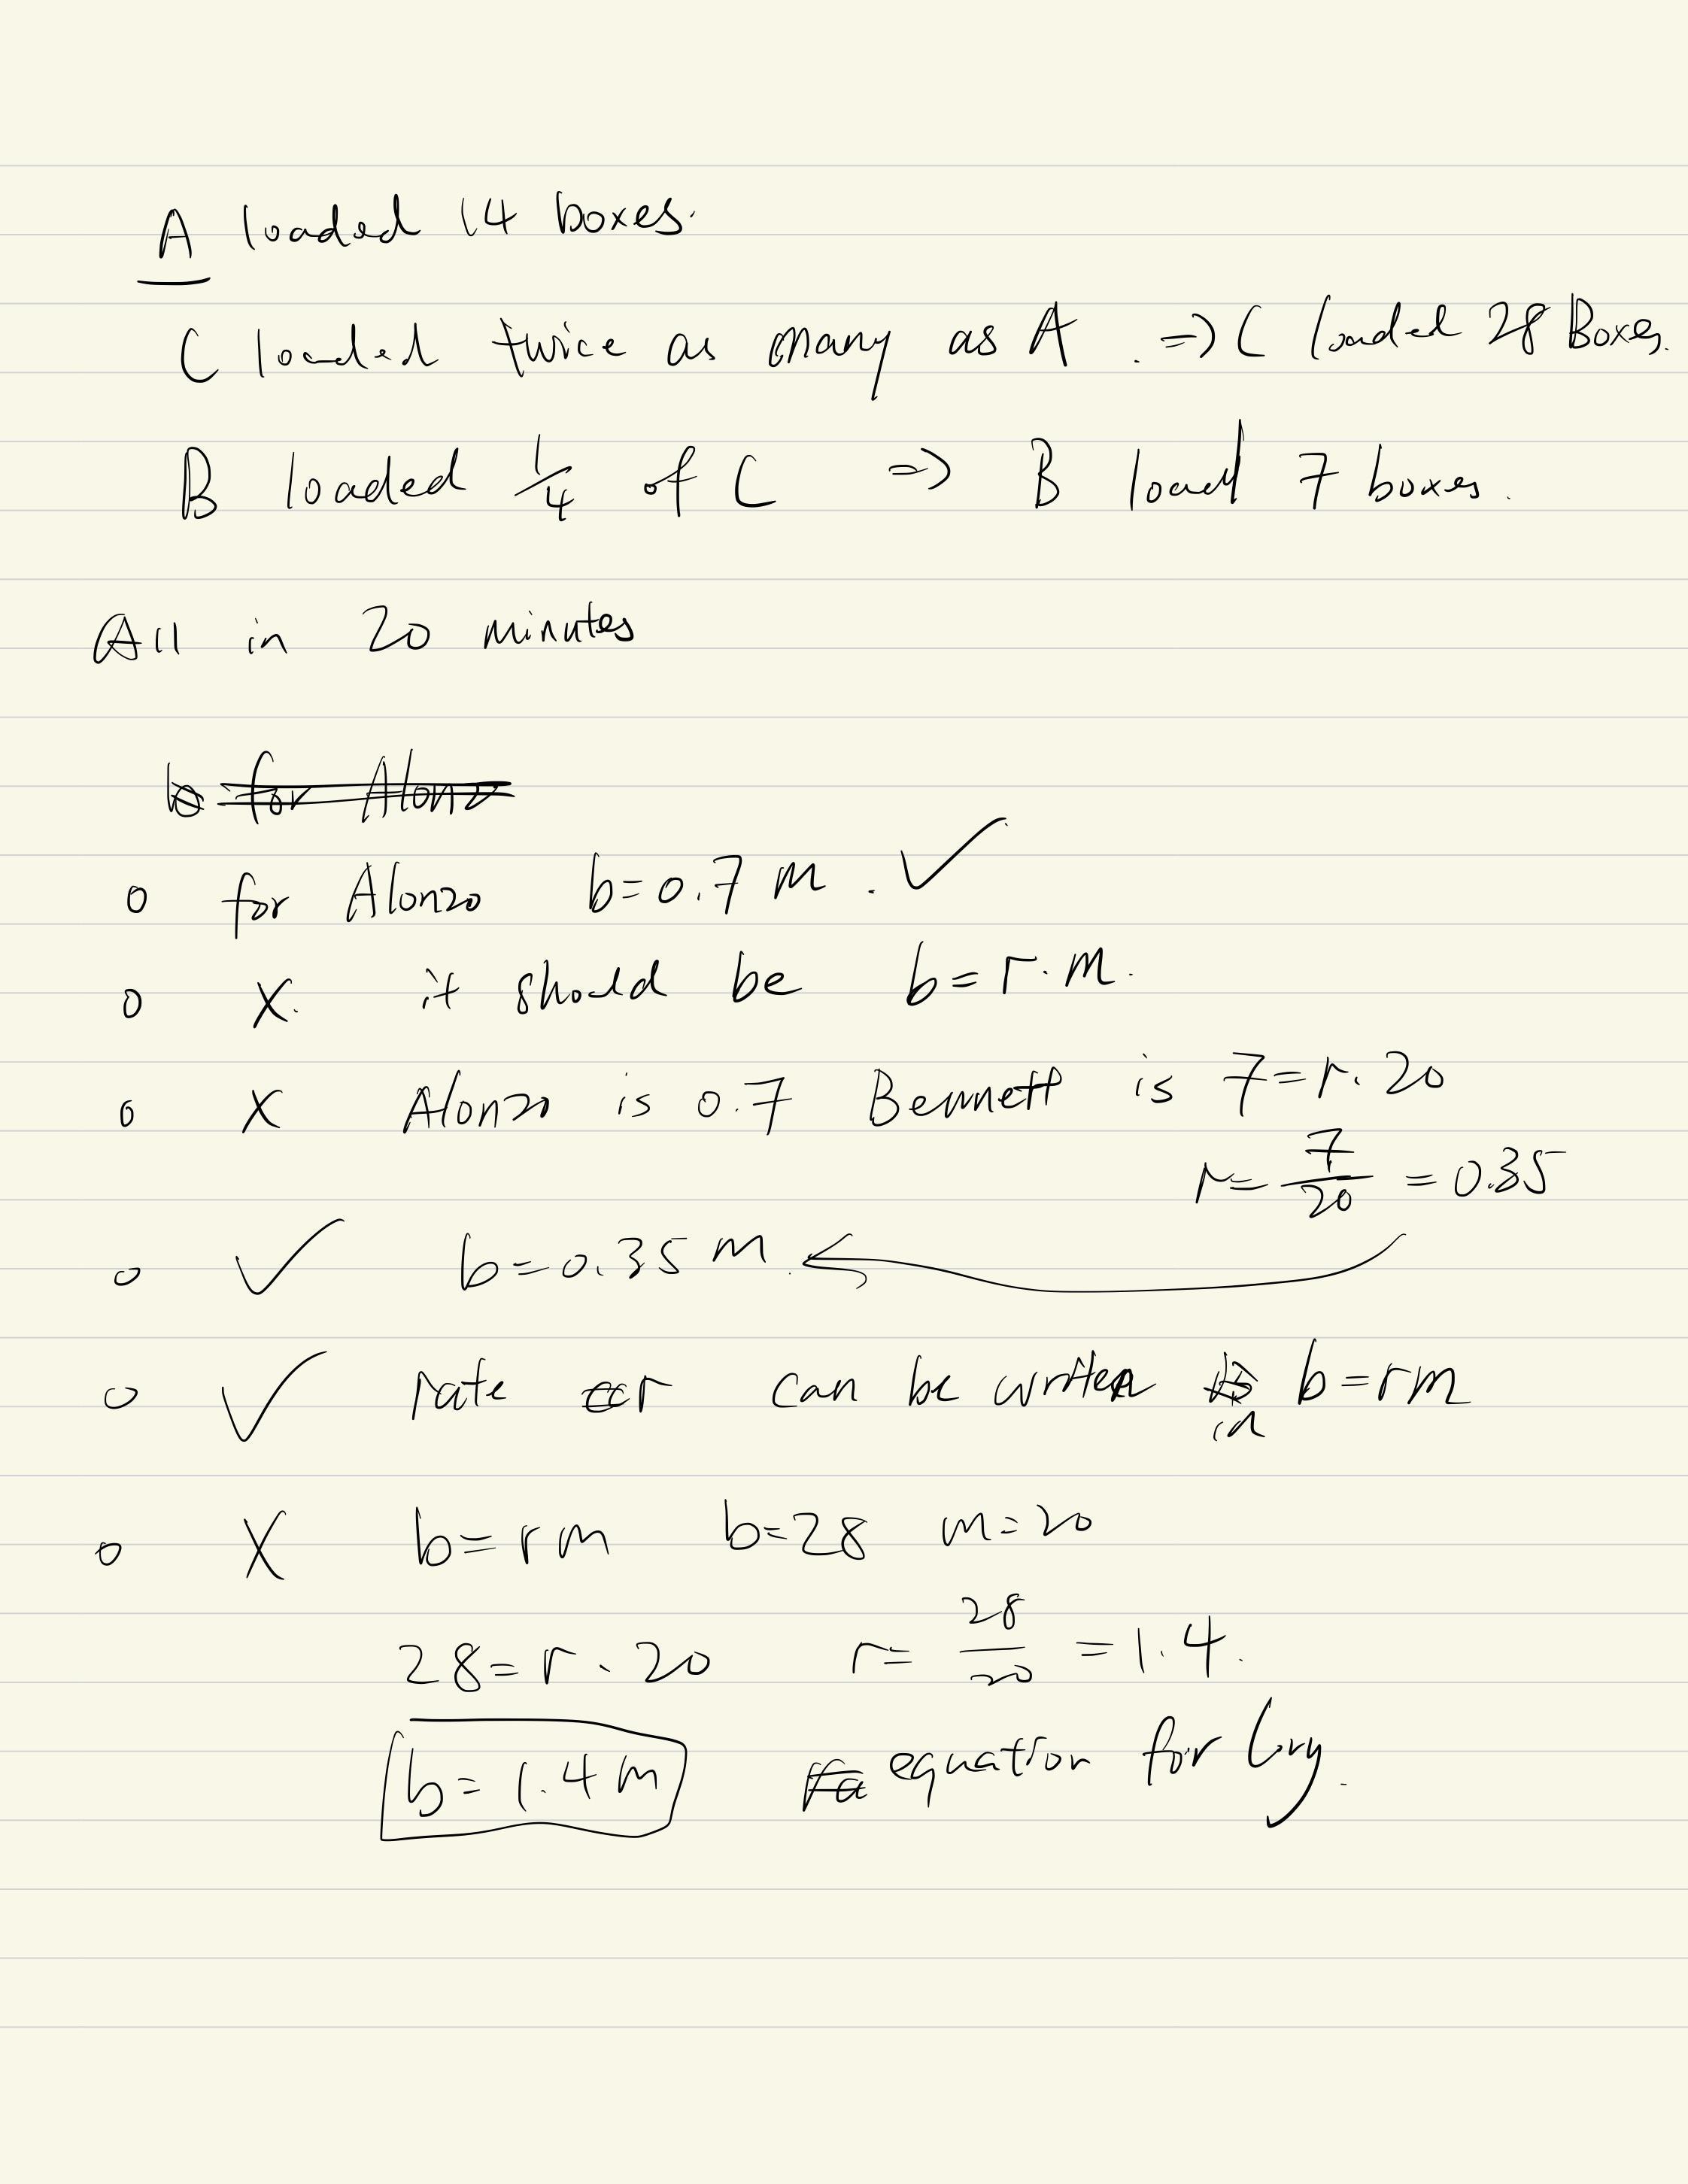 A loaded 14 boxes.
C loaded twice as many as A . => C loaded 28 Boxes.
B loaded 1/4 of C => B load 7 boxes.
All in 20 minutes
b for Alonzo
o for Alonzo b=0.7 m . ✓
o X. it should be b=r·m.
o X Alonzo is 0.7 Bennett is 7=r·20
r= 7/20 = 0.35
o ✓ b=0.35 m.
o ✓ rate r can be written in b=rm
o X b=rm b=28 m=20
28=r·20 r= 28/20 =1.4.
b=1.4m equation for